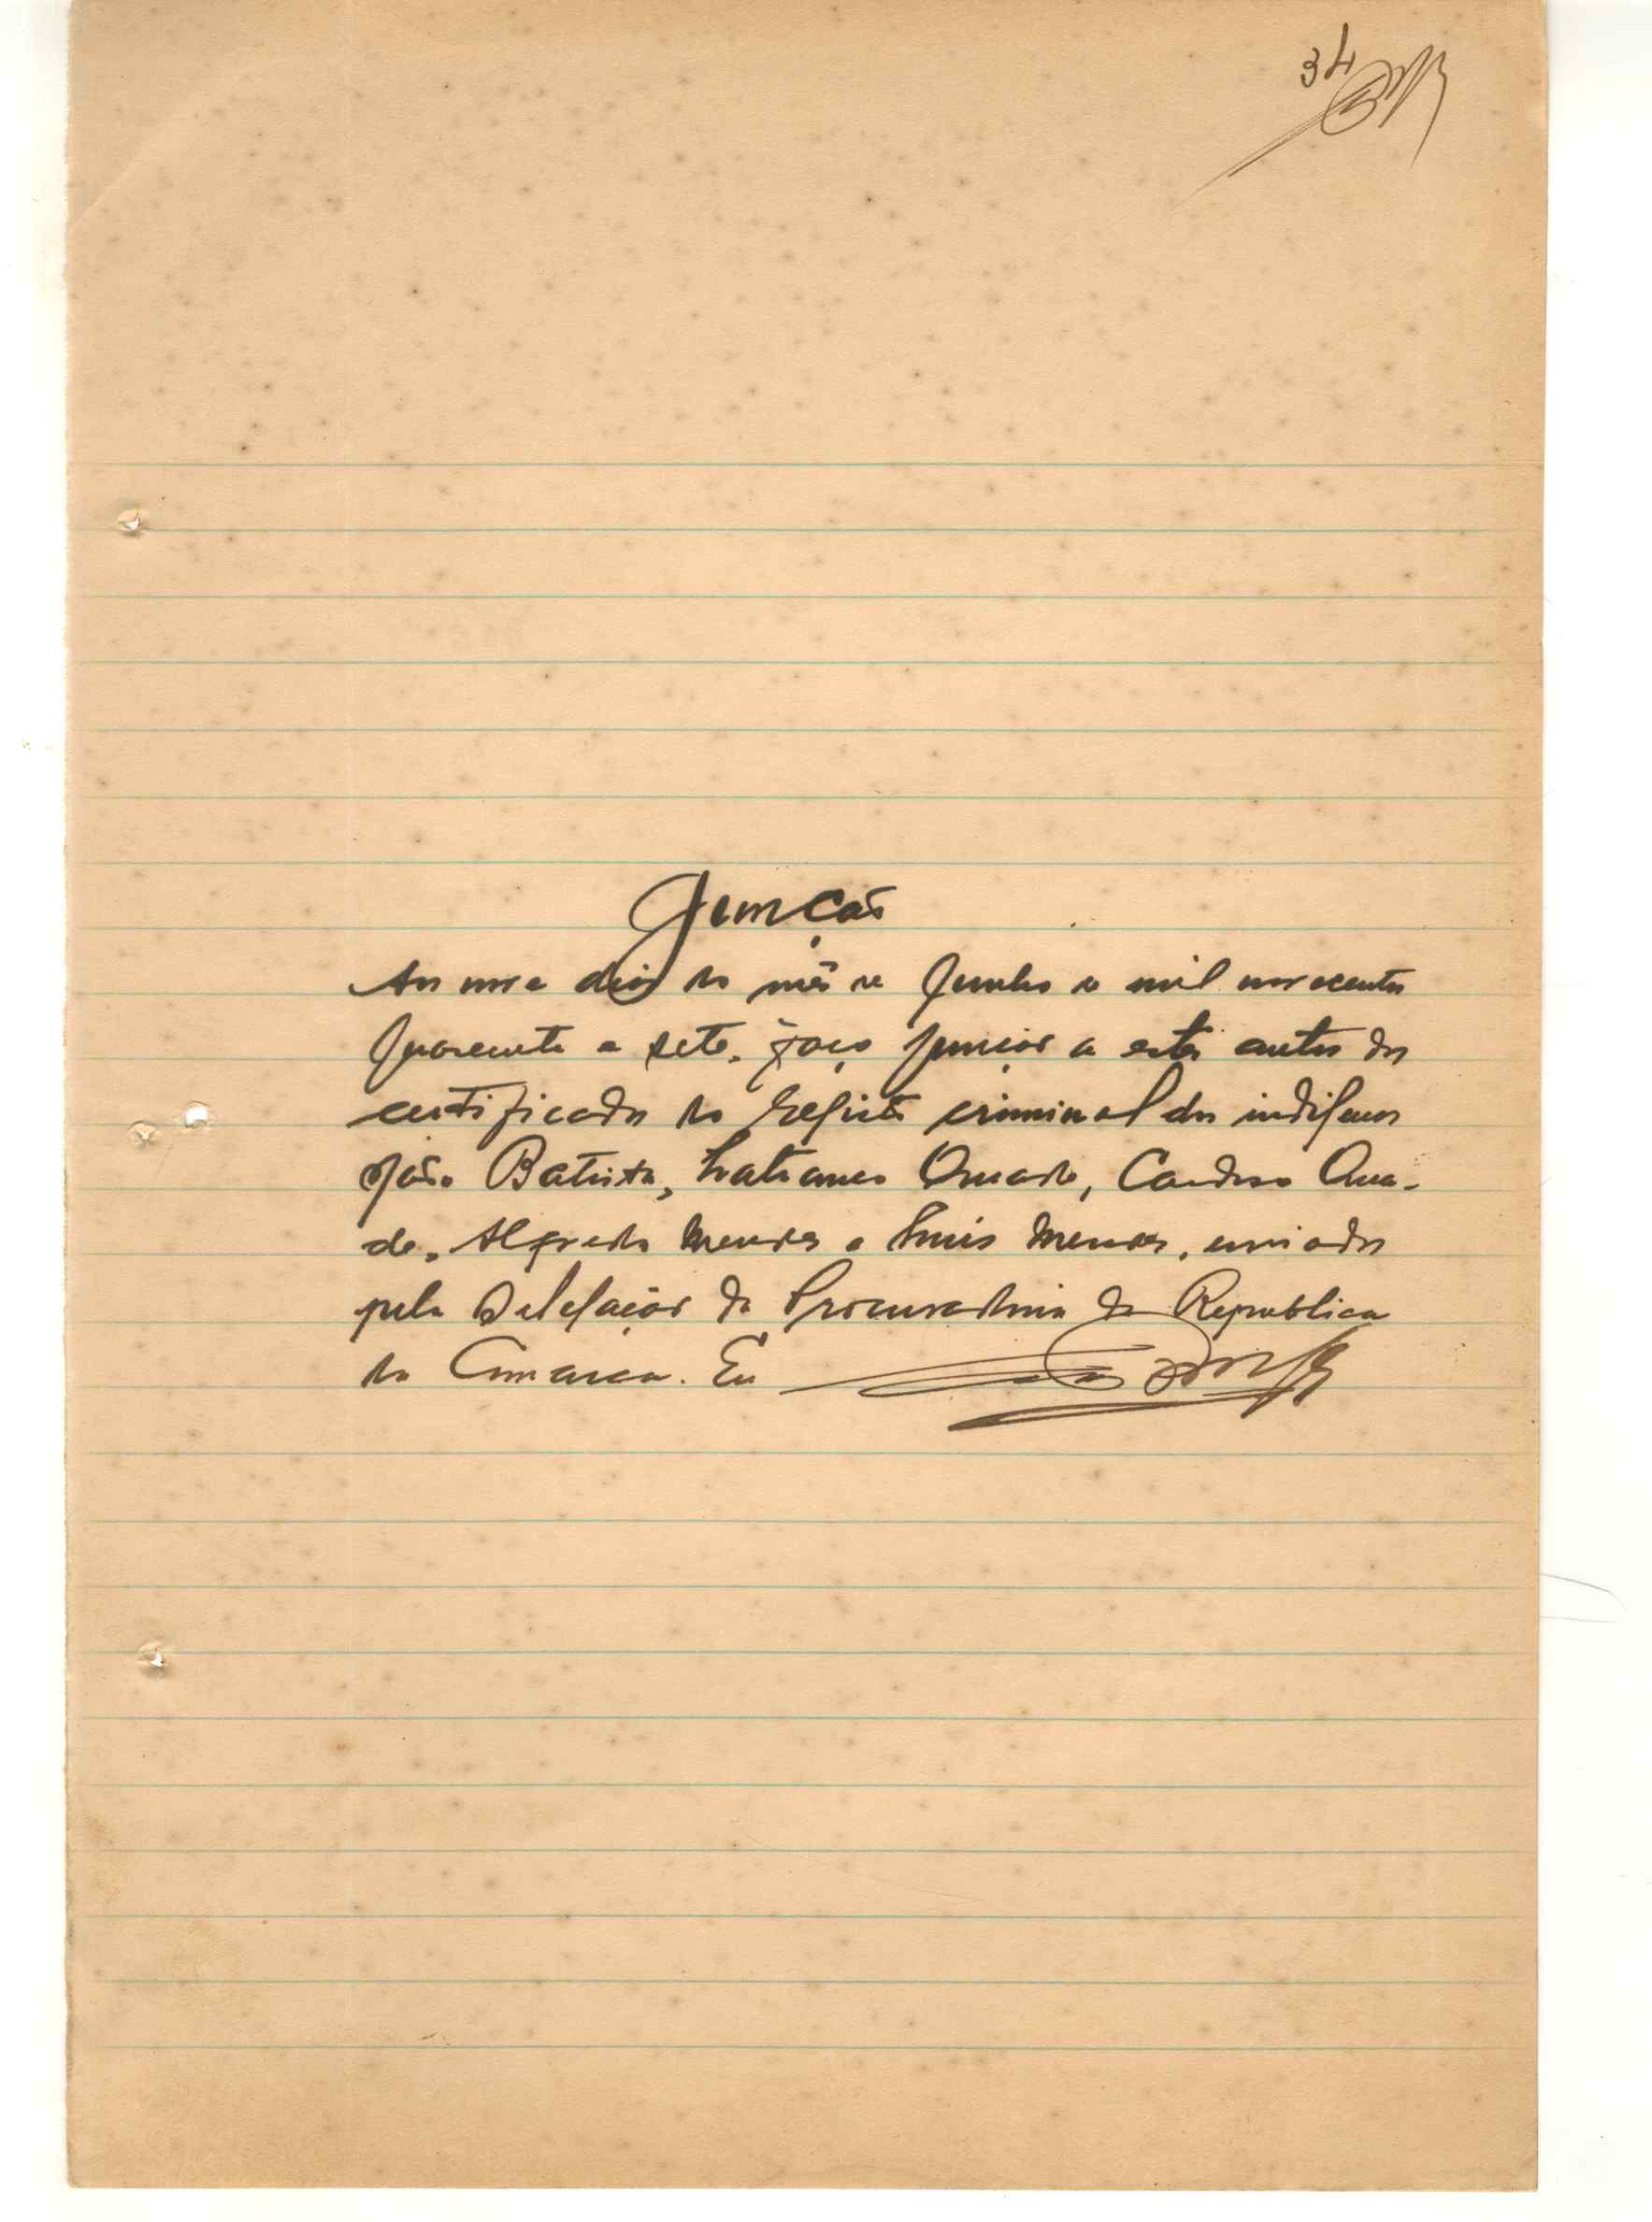 34
Junção
Aos nove dias do mês de Junho de mil novecentos
quarenta e sete, faço junção a estes autos dos
certificados do registo criminal dos indígenas
João Batista, Quade, Cardoso Qua-
de, Alfredo Mendes e Luis Mendes, enviados
pela Delelgação da Procuradoria da Republica
da Comarca. Eu